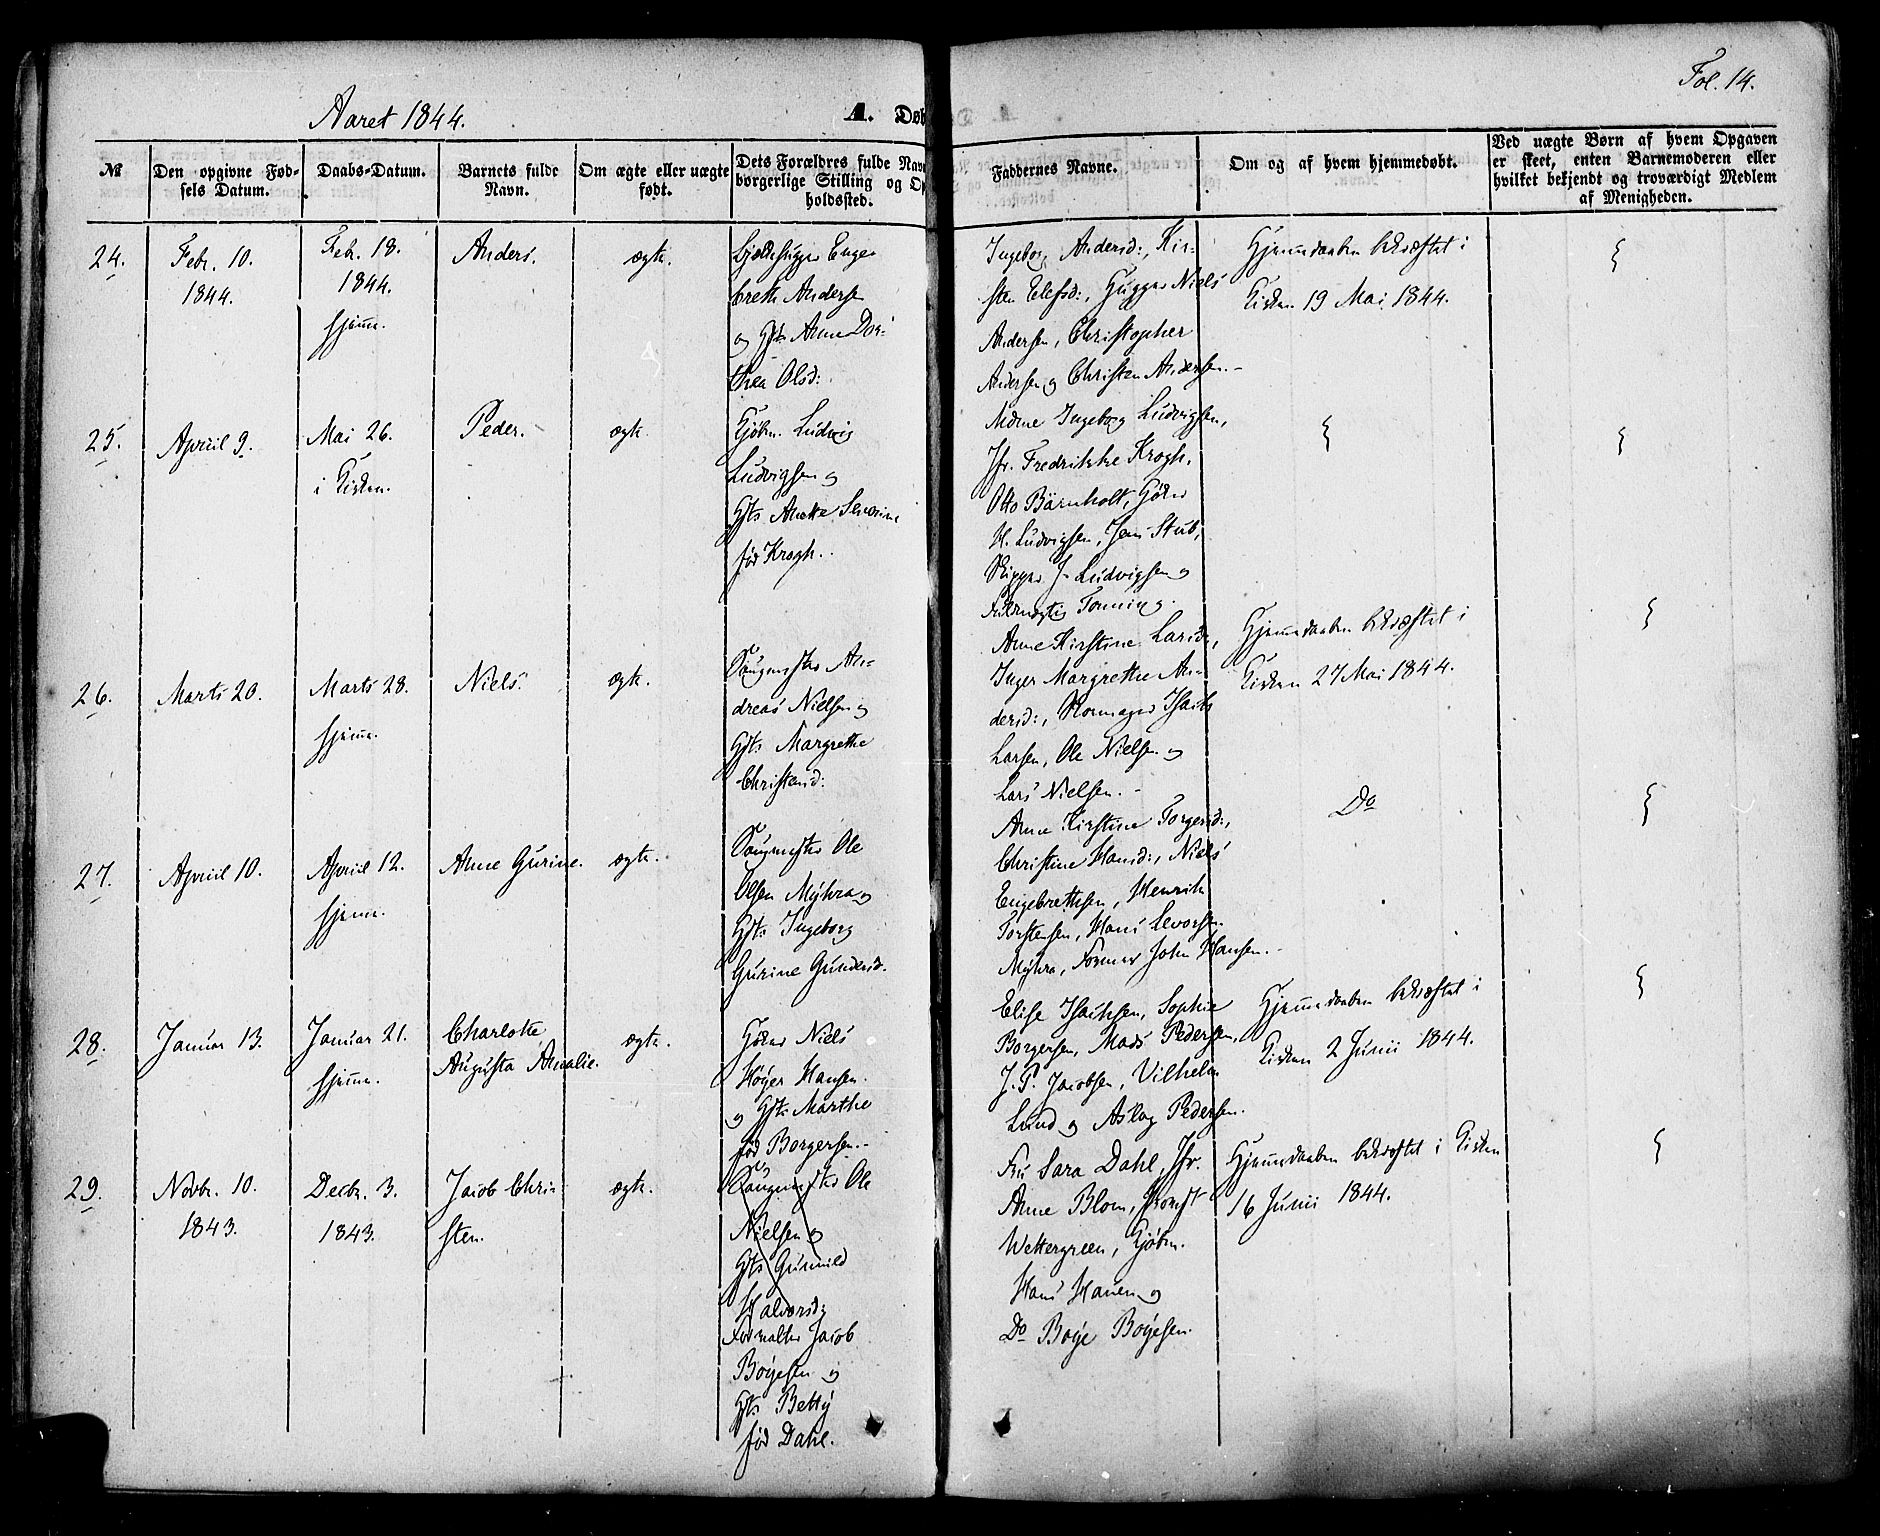 Aaret 1844.
A. Døb
Fol. 14.
№
Den opgivne Fød-
sels Datum.
Daabs-Datum.
Barnets fulde
Navn.
Om ægte eller uægte
født.
Dets Forældres fulde Navn
borgerlige Stilling og Op
holdssted.
Faddernes Navne.
Om og af hvem hjemmedøbt.
Ved uægte Børn af hvem Opgaven
er skeet, enten Barnemoderen eller
hvilket bekjendt og troværdigt Medlem
af Menigheden.
24.
Febr. 10.
1844.
Febr. 18.
1844.
hjemme.
Anders.
ægte.
Enge-
breth Andersen
og Hst: Anne Dor-
thea Olsd:
Ingeborg Andersd:, Kir-
sten Elefsd:, Niels
Andersen, Christopher
Andersen og Christen Andersen.-
Hjemmedaaben bekræftet i
Kirken 19 Mai 1844.
25.
April 9.
Mai 26.
i Kirken.
Peder.
ægte.
Kjøbm. Ludvig
Ludvigsen og
Hst: Anette Severine
fød Krogh.
Mdme Ingeborg Ludvigsen,
Jfr. Fredrikke Krogh,
Otto Bärnholt,
H. Ludvigsen, Jens Stub,
Skipper J. Ludvigsen og
Tonning.
26.
Marts 20.
Marts 28.
hjemme.
Niels.
ægte.
Saugmester An-
dreas Nielsen og
Hst: Margrethe
Christensd:
Anne Kirstine Larsd:,
Inger Margrethe An-
dersd:, Skomager Isach
Larsen, Ole Nielsen og
Lars Nielsen.-
Hjemmedaaben bekræftet i
Kirken 27 Mai 1844.
27.
April 10.
April 12.
hjemme.
Anne Gurine.
ægte.
Saugmester Ole
Olsen Myhra og
Hst: Ingeborg
Gurine Gundersd.
Anne Kirstine Torgersd:,
Christine Hansd:, Niels
Engebrethsen, Henrik
Torstensen, Hans Levorsen
Myhra, Former John Hansen.-
Do
28.
Januar 13.
Januar 21.
hjemme.
Charlotte
Augusta Amalie.
ægte.
Niels
Høyer Hansen
og Hst: Marthe
fød Borgersen.-
Elise Isachsen, Sophie
Borgersen, Mads Pedersen,
J. P. Jacobsen, Vilhelm
Lund og Aslag Pedersen.
Hjemmedaaben bekræftet i
Kirken 2 Junii 1844.
29.
Novbr. 10.
1843.
Decbr. 3.
1843.
Jacob Chri-
sten.
ægte.
Saugmester Ole
Nielsen og
Hst: Gunnild
Halvorsd:
Forvalter Jacob
Boyesen og
Hst: Betty
fød Dahl.
Fru Sara Dahl, Jfr.
Anne Blom, Provst
Wettergreen, Kjøbm.
Hans Hauen og
Do Boye Boyesen.
Hjemmedaaben bekræftet i Kirken
16 Junii 1844.